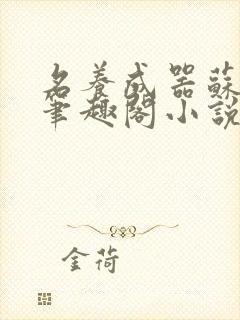 名養成器蘇
筆趣閣小說
金荷